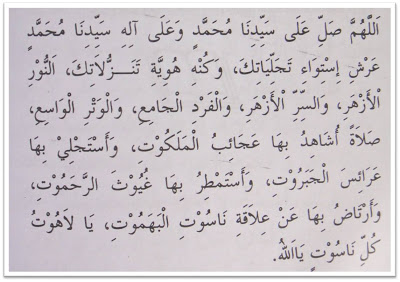 اَللَّهُمَّ صَلِّ عَلَى سَيِّدِنَا مُحَمَّدٍ وَعَلَى آلِهِ سَيِّدِنَا مُحَمَّدٍ
عَرْشِ إِسْتِوَاءِ تَجَلِّيَاتِكَ، وَكُنْهِ هُوِيَّةِ تَنَـــزُّلَاتِكَ، اَلنُّوْرِ
الْأَزْهَرِ، وَالسِّرِّ الْأَزْهَرِ، وَالْفَرْدِ الْجَامِعِ، وَالْوَتْرِ الْوَاسِعِ،
صَلَاةً أُشَاهِدُ بِهَا عَجَائِبَ الْمَلَكُوْتِ، وَأَسْتَجْلِيْ بِهَا
عَرَائِسَ الْجَبَرُوْتِ، وَأَسْتَمْطِرُ بِهَا غُيُوْثَ الرَّحَمُوْتِ،
وَأَرْتَاضُ بِهَا عَنْ عِلَاقَةِ نَاسُوْتِ الْبَهَمُوْتِ، يَا لَاهُوْتُ
كُلِّ نَاسُوْتٍ يَااللهُ.